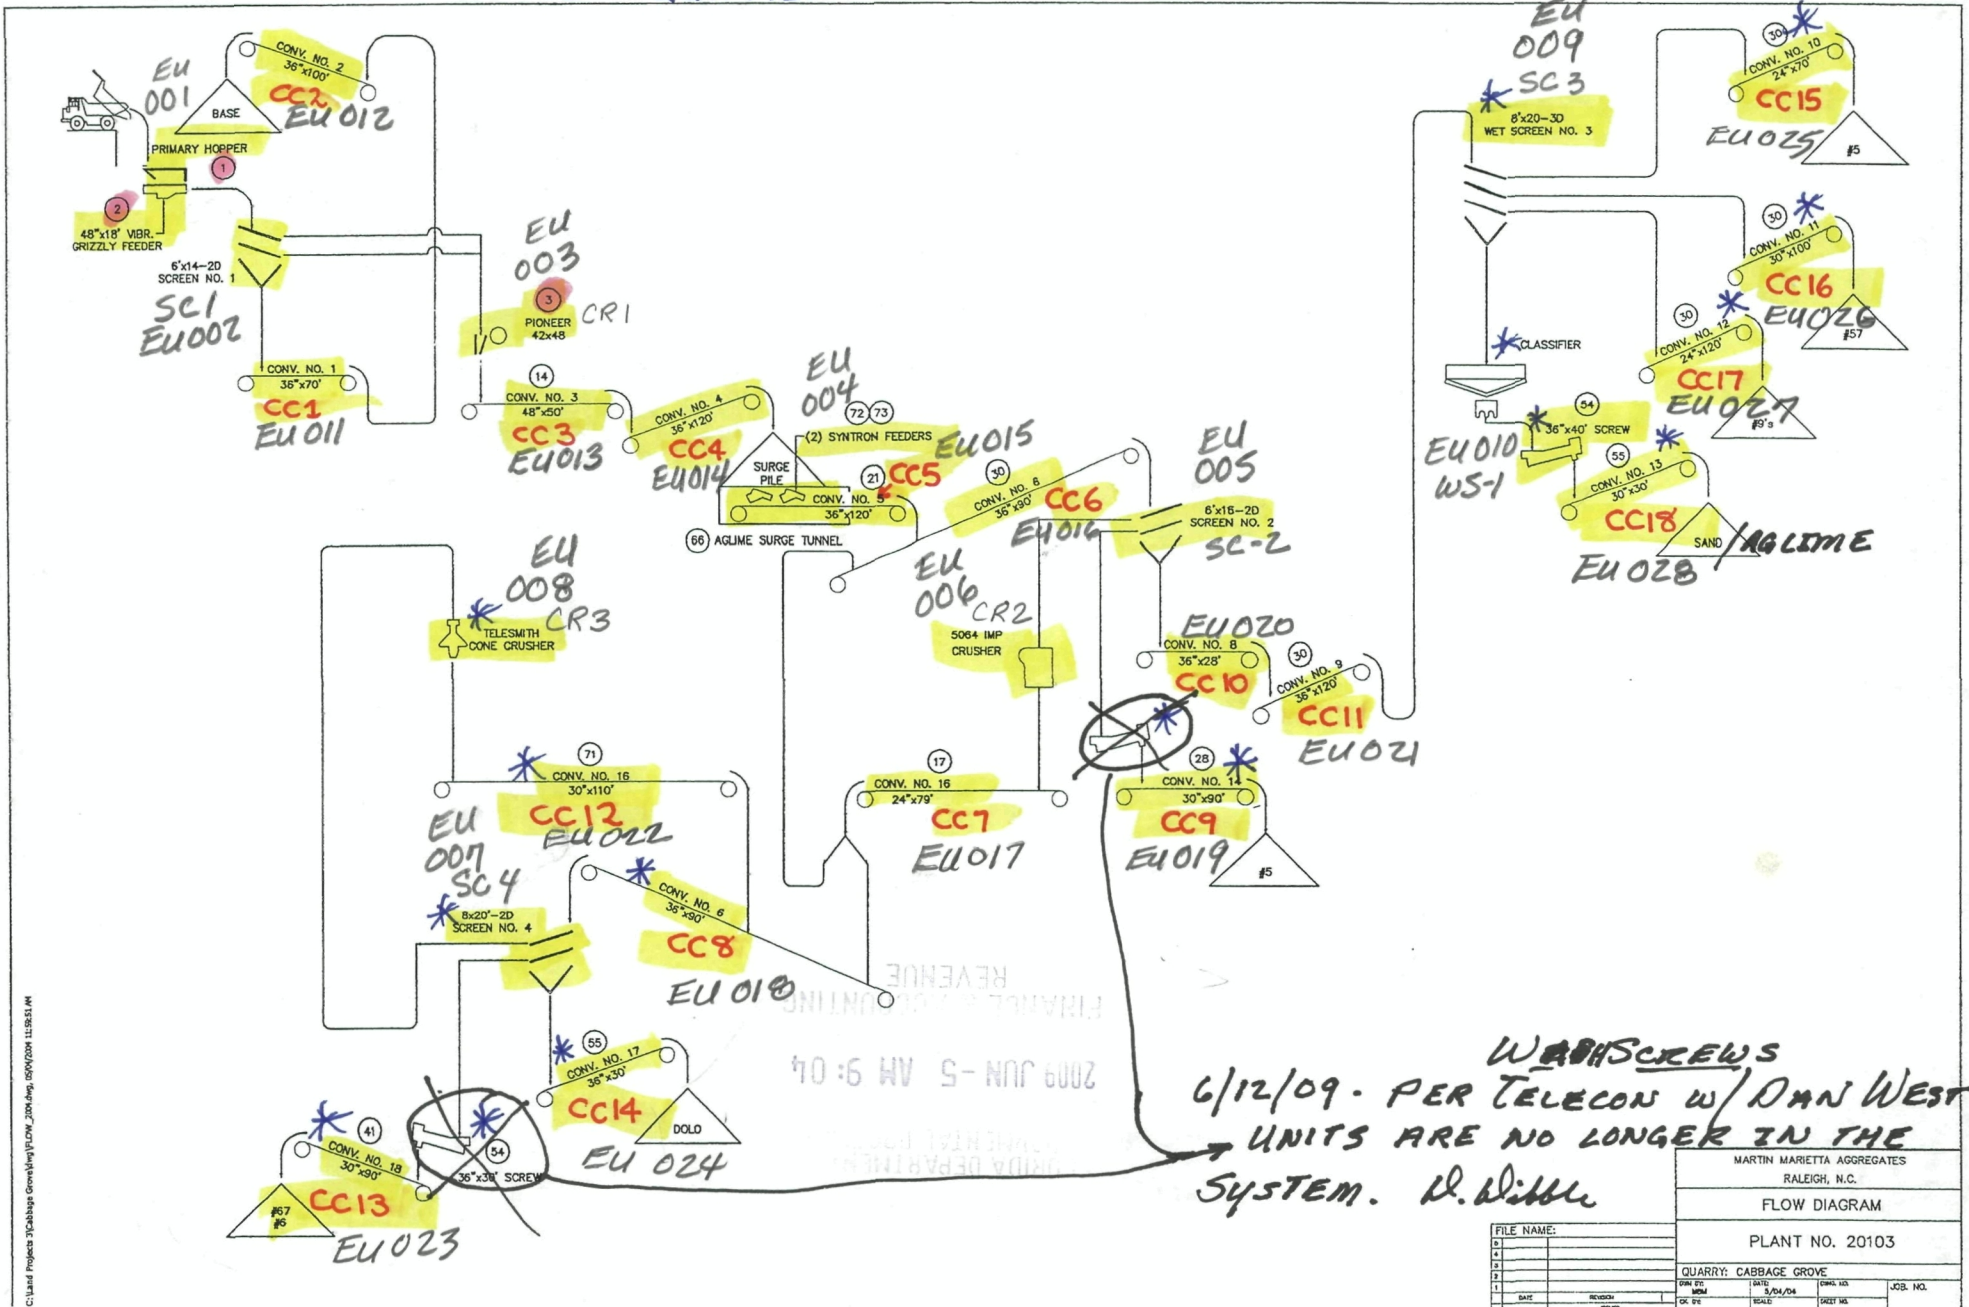 EU
001
CONV. NO. 2
36"x100'
CC2
EU 012
BASE
PRIMARY HOPPER
1
2
48"x18' VIBR.
GRIZZLY FEEDER
6'x14-2D
SCREEN NO. 1
SC1
EU002
CONV. NO. 1
36"x70'
CC1
EU 011
EU
003
3
PIONEER
42x48
CR1
14
CONV. NO. 3
48"x50'
CC3
EU013
CONV. NO. 4
36"x120'
CC4
EU014
EU
004
72 73
(2) SYNTRON FEEDERS
SURGE
PILE
21
CC5
EU015
CONV. NO. 5
36"x120'
66 AGLIME SURGE TUNNEL
30
CONV. NO. 6
36"x90'
CC6
EU016
EU
005
6'x16-2D
SCREEN NO. 2
SC-2
EU
006
CR2
5064 IMP
CRUSHER
EU020
CONV. NO. 8
36"x28'
CC10
30
CONV. NO. 9
36"x120'
CC11
EU021
28
CONV. NO. 14
30"x90'
CC9
EU019
#5
17
CONV. NO. 16
24"x79'
CC7
EU017
EU
008
CR3
TELESMITH
CONE CRUSHER
71
CONV. NO. 16
30"x110'
CC12
EU022
EU
007
SC4
8x20'-2D
SCREEN NO. 4
CONV. NO. 6
36"x90'
CC8
EU 018
55
CONV. NO. 17
36"x30'
CC14
EU 024
DOLO
54
36"x30' SCREW
41
CONV. NO. 18
30"x90'
CC13
EU023
#67
#6
EU
009
SC3
8'x20-3D
WET SCREEN NO. 3
30
CONV. NO. 10
24"x70'
CC15
EU025
#5
30
CONV. NO. 11
30"x100'
CC16
EU026
#57
30
CONV. NO. 12
24"x120'
CC17
EU027
#9's
CLASSIFIER
54
36"x40' SCREW
EU010
WS-1
55
CONV. NO. 13
30"x30'
CC18
EU028
SAND /AGLIME
REVENUE
FINANCE & ACCOUNTING
2009 JUN -5 AM 9:04
WASHSCREWS
6/12/09. PER TELECON W/ DAN WEST
UNITS ARE NO LONGER IN THE
SYSTEM. D. Dibble
MARTIN MARIETTA AGGREGATES
RALEIGH, N.C.
FLOW DIAGRAM
PLANT NO. 20103
QUARRY: CABBAGE GROVE
FILE NAME:
5
4
3
2
1
DATE REVISION
DWN BY:
MBM
DATE:
5/04/04
DWG. NO.
JOB. NO.
CK. BY:
SCALE:
SHEET NO.
C:\Land Projects 3\Cabbage Grove\dwg\FLOW_2004.dwg, 05/04/2004 11:59:51 AM